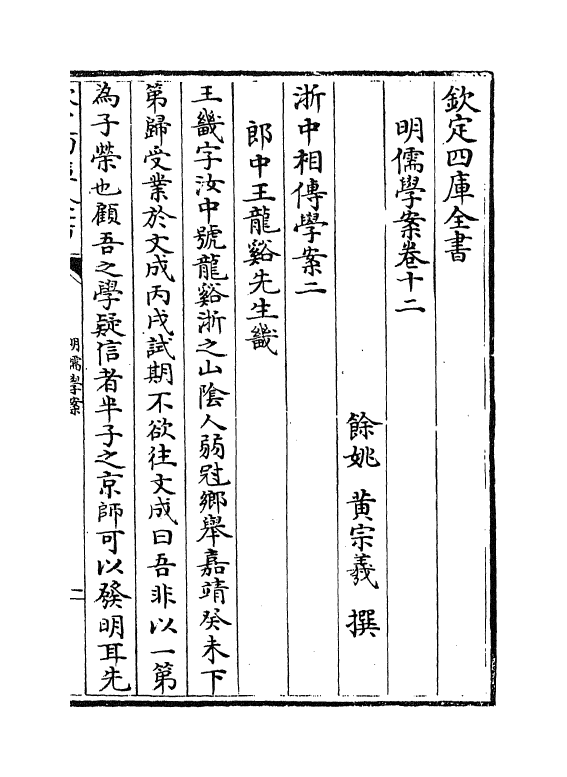 欽定四庫全書
明儒學案卷十二
餘姚 黃宗羲 撰
浙中相傳學案二
郎中王龍谿先生畿
王畿字汝中號龍谿浙之山陰人弱冠鄉舉嘉靖癸未下
第歸受業於文成丙戌試期不欲往文成曰吾非以一第
為子榮也顧吾之學疑信者半子之京師可以發明耳先
明儒學案